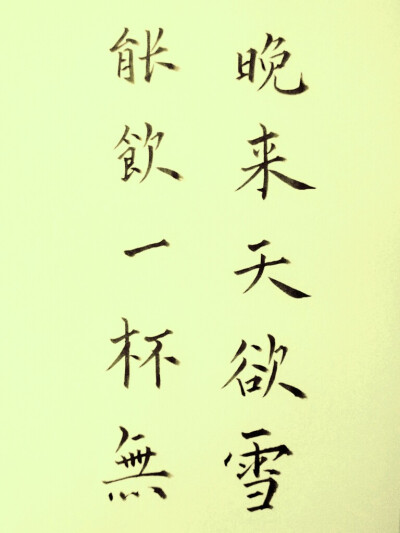 晚来天欲雪
能飲一杯無